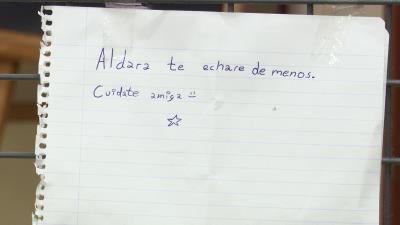 Aldara te echare de menos.
Cuidate amiga